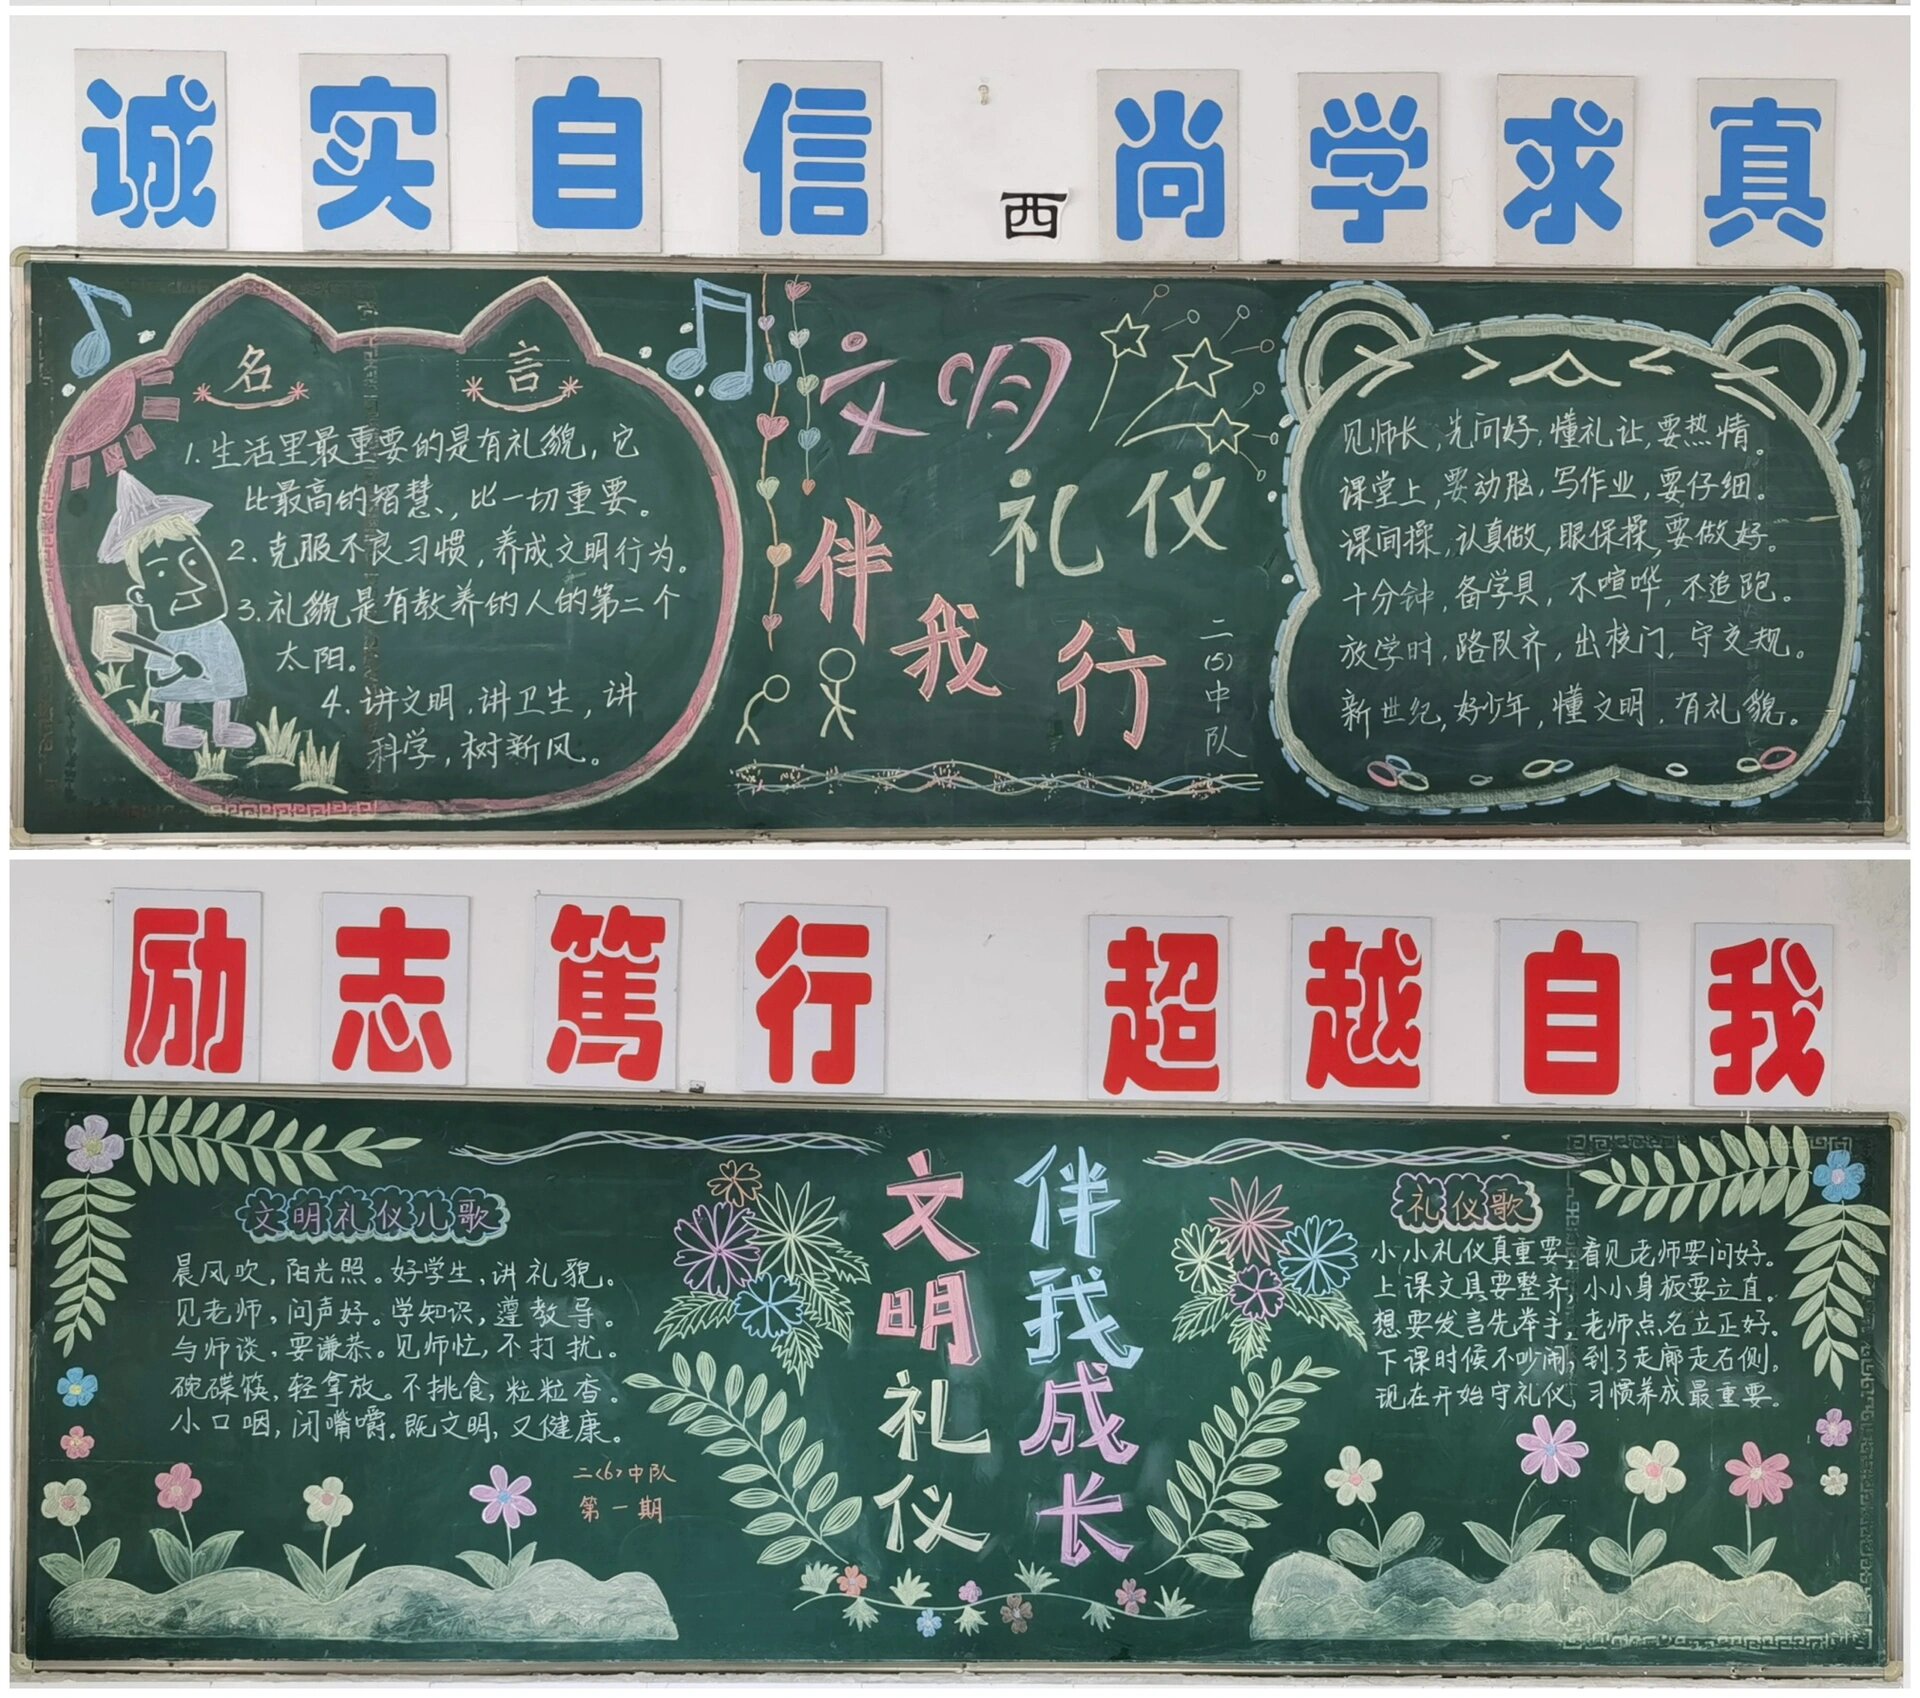 诚实自信 尚学求真
西
名言
1.生活里最重要的是有礼貌，它
比最高的智慧、比一切重要。
2.克服不良习惯，养成文明行为。
3.礼貌是有教养的人的第二个
太阳。
4.讲文明，讲卫生，讲
科学，树新风。
文明
礼仪
伴我行
二(5)中队
见师长，先问好，懂礼让，要热情。
课堂上，要动脑，写作业，要仔细。
课间操，认真做，眼保操，要做好。
十分钟，备学具，不喧哗，不追跑。
放学时，路队齐，出校门，守交规。
新世纪，好少年，懂文明，有礼貌。
励志篤行 超越自我
文明礼仪儿歌
晨风吹，阳光照。好学生，讲礼貌。
见老师，问声好。学知识，遵教导。
与师谈，要谦恭。见师忙，不打扰。
碗碟筷，轻拿放。不挑食，粒粒香。
小口咽，闭嘴嚼。既文明，又健康。
二<6>中队
第一期
文明礼仪
伴我成长
礼仪歌
小小礼仪真重要，看见老师要问好。
上课文具要整齐，小小身板要立直。
想要发言先举手，老师点名立正好。
下课时候不吵闹，到了走廊走右侧。
现在开始守礼仪，习惯养成最重要。